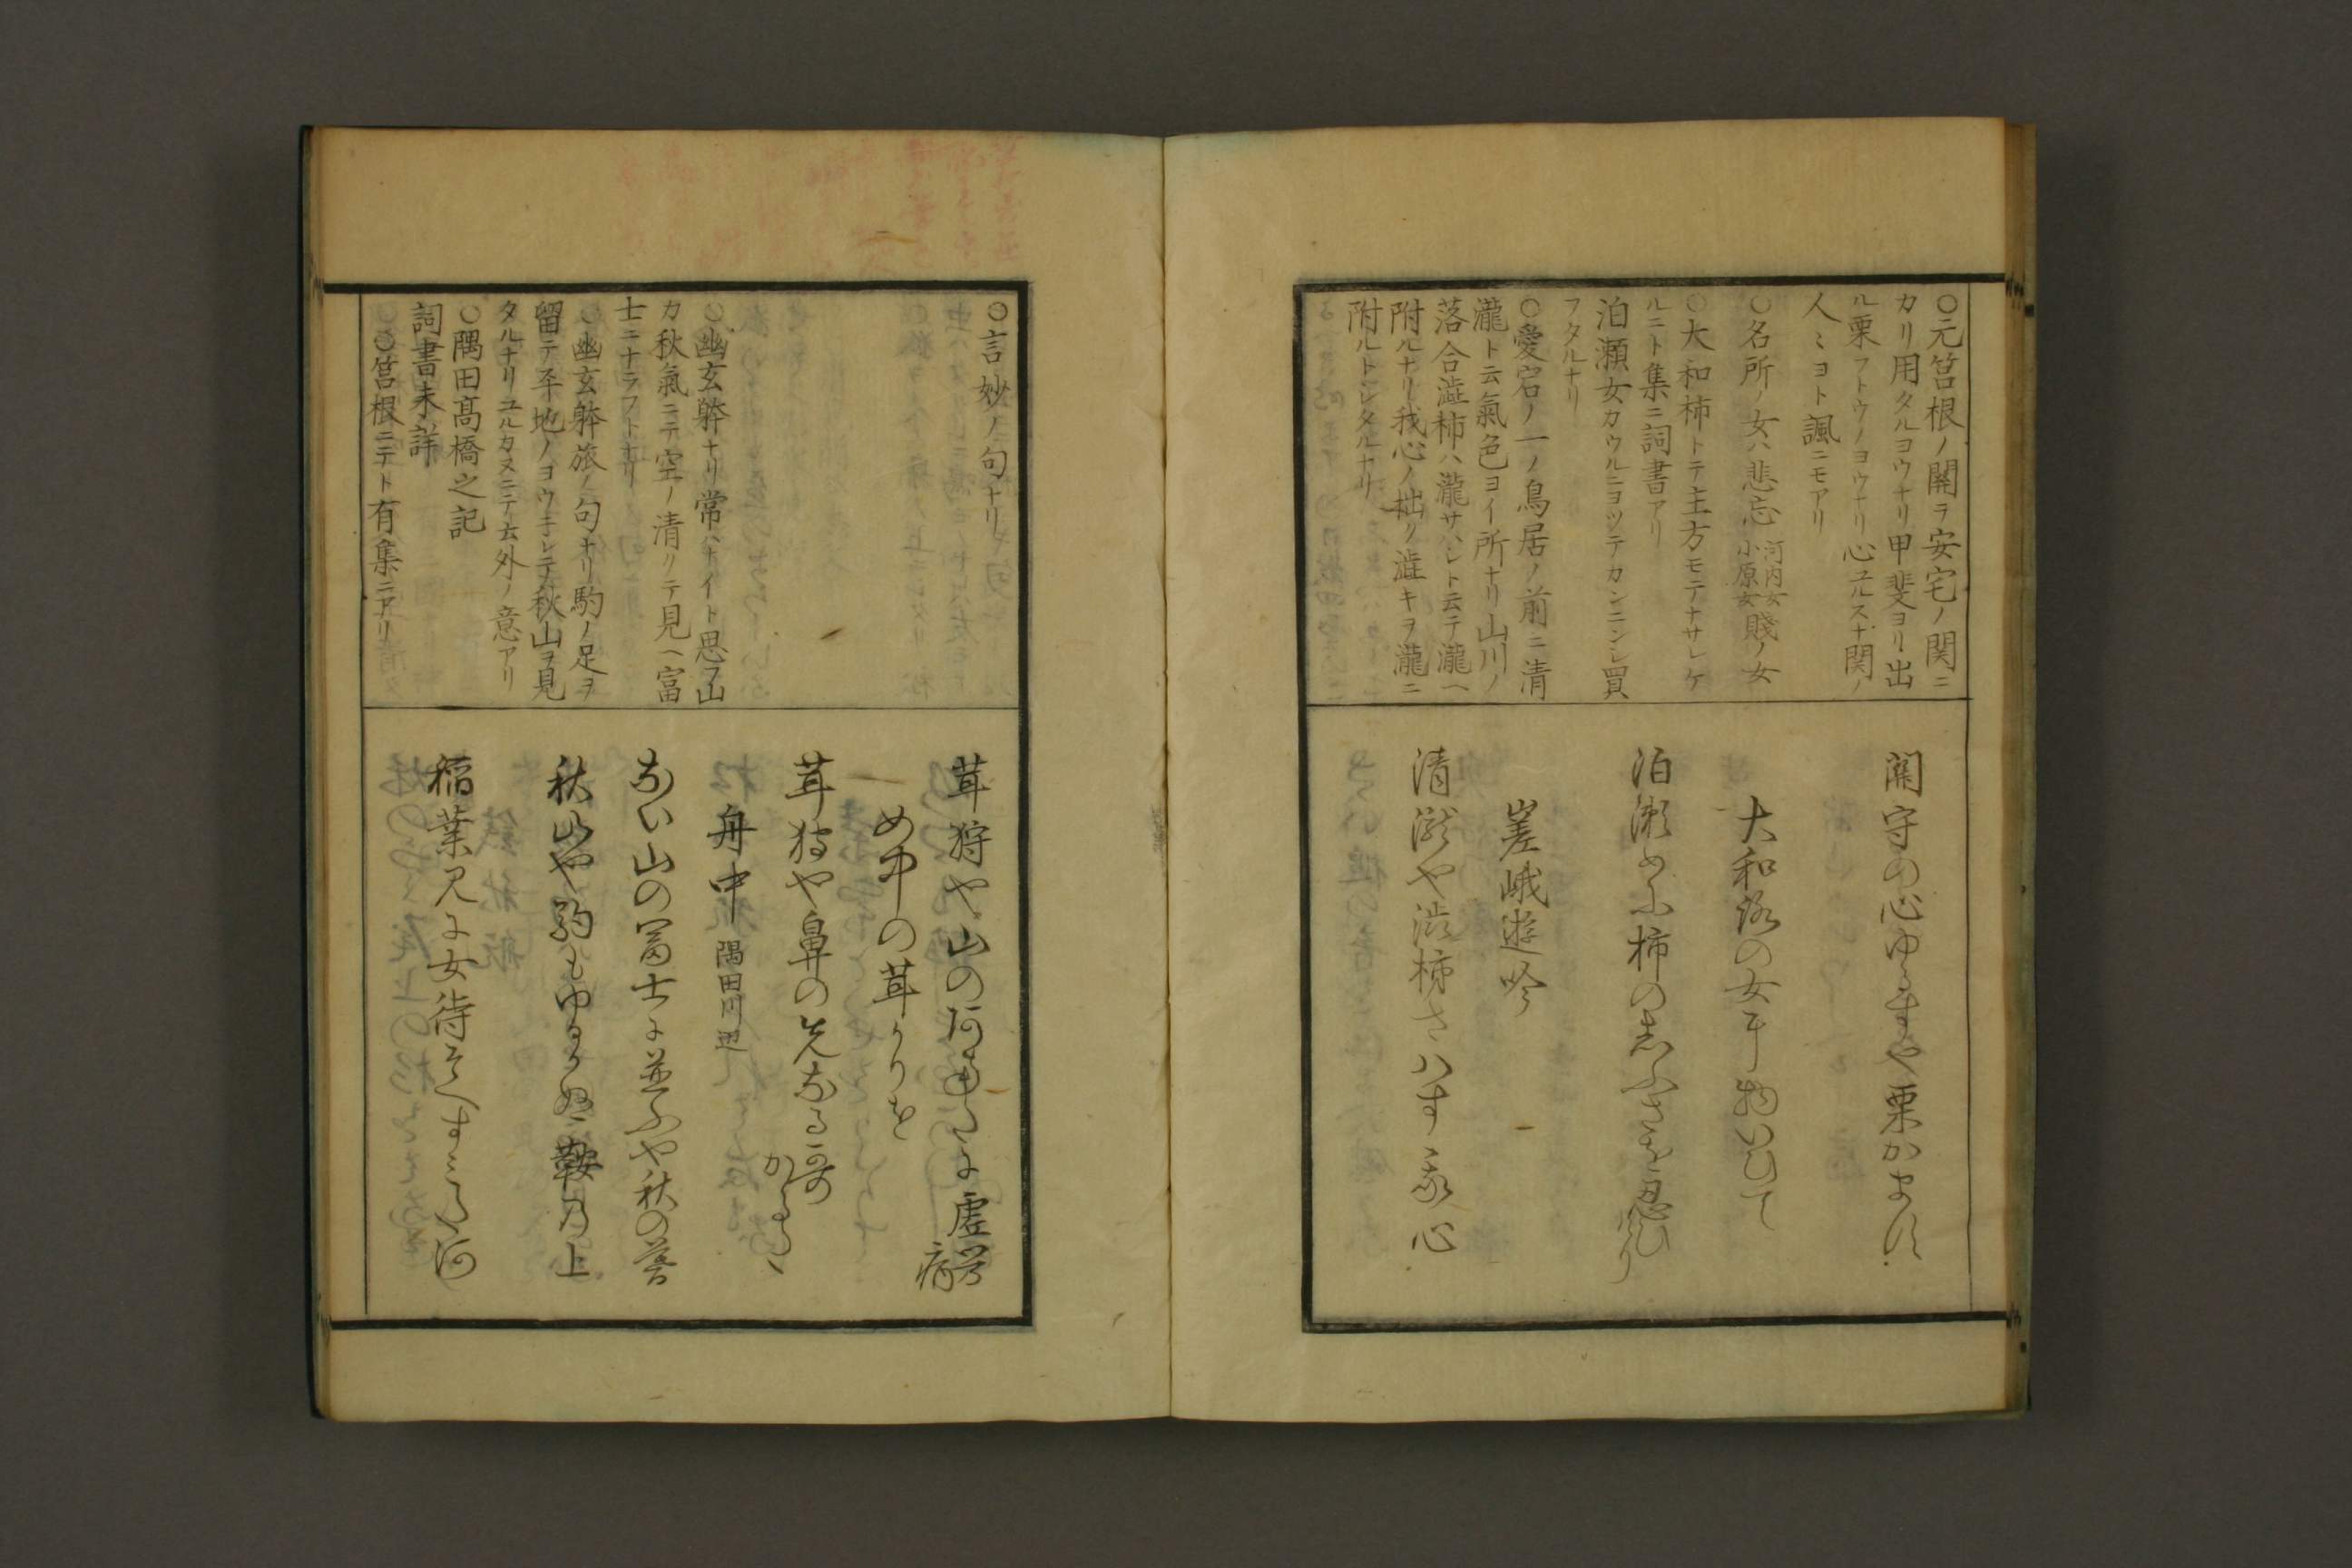 〇元筥根ノ關ヲ安宅ノ関ニ
カリ用タルヨウナリ甲斐ヨリ出
ル栗フトウノヨウナリ心ユルスナ関ノ
人ミヨト諷ニモアリ
〇名所ノ女ハ悲忘 河内女 小原女 賤ノ女
〇大和柿トテ主方モテナサレケ
ルニト集ニ詞書アリ
泊瀬女カウルニヨツテカンニンシ買
フタルナリ
〇愛宕ノ一ノ鳥居ノ前ニ清
瀧ト云氣色ヨイ所ナリ山川ノ
落合澁柿ハ瀧サハシト云テ瀧ヘ
附ルナリ我心ノ拙ク澁キヲ瀧ニ
附ルトシタルナリ
關守の心ゆるすや栗かます
大和路の女に物いひて
泊瀬めに柿のしふさを忍ひけり
嵯峨遊吟
清瀧や渋柿さハす我心
〇言妙ノ句ナリ
〇幽玄躰ナリ常ハナイト思フ山
カ秋氣ニテ空ノ清クテ見ヘ富
士ニナラフトナリ
〇幽玄躰旅ノ句ナリ駒ノ足ヲ
留テ平地ノヨウナレテ秋山ヲ見
タルナリユルカヌニテ言外ノ意アリ
〇隅田髙橋之記
詞書未詳
〇筥根ニテト有集ニアリ
茸狩や山のあなたに虚勞病
め中の茸かりを
茸狩や鼻の先なる哥かるた
舟中 隅田川 辺
ない山の冨士に並ふや秋の暮
秋山や駒もゆるかぬ鞍乃上
稲葉見に女待そへすミた河